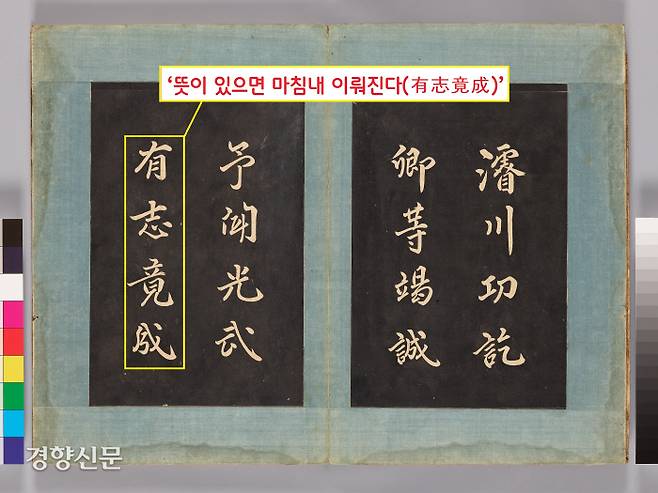 ‘뜻이 있으면 마침내 이뤄진다(有志竟成)’
濬川功訖
卿等竭誠
予聞光武
有志竟成
경향신문